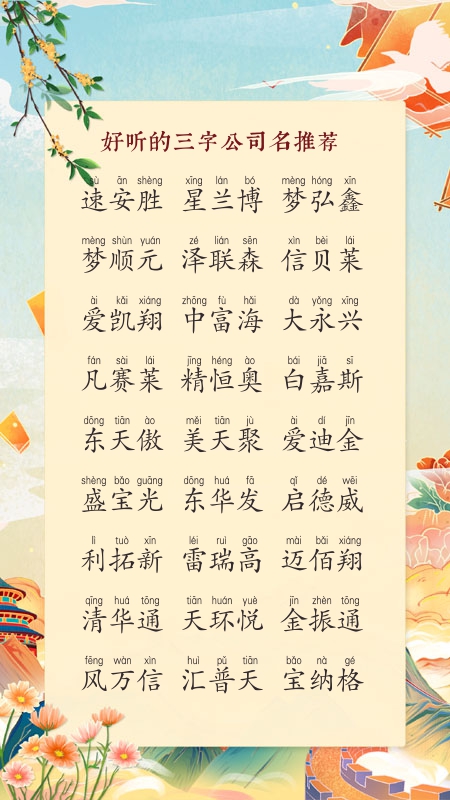 好听的三字公司名推荐
sù ān shèng xīng lán bó mèng hóng xīn
速安胜 星兰博 梦弘鑫
mèng shùn yuán zé lián sēn xìn bèi lái
梦顺元 泽联森 信贝莱
ài kǎi xiáng zhōng fù hǎi dà yǒng xīng
爱凯翔 中富海 大永兴
fán sài lái jīng héng ào bái jiā sī
凡赛莱 精恒奥 白嘉斯
dōng tiān ào měi tiān jù ài dí jīn
东天傲 美天聚 爱迪金
shèng bǎo guāng dōng huá fā qǐ dé wēi
盛宝光 东华发 启德威
lì tuò xīn léi ruì gāo mài bǎi xiáng
利拓新 雷瑞高 迈佰翔
qīng huá tōng tiān huán yuè jīn zhèn tōng
清华通 天环悦 金振通
fēng wàn xìn huì pǔ tiān bǎo nà gé
风万信 汇普天 宝纳格